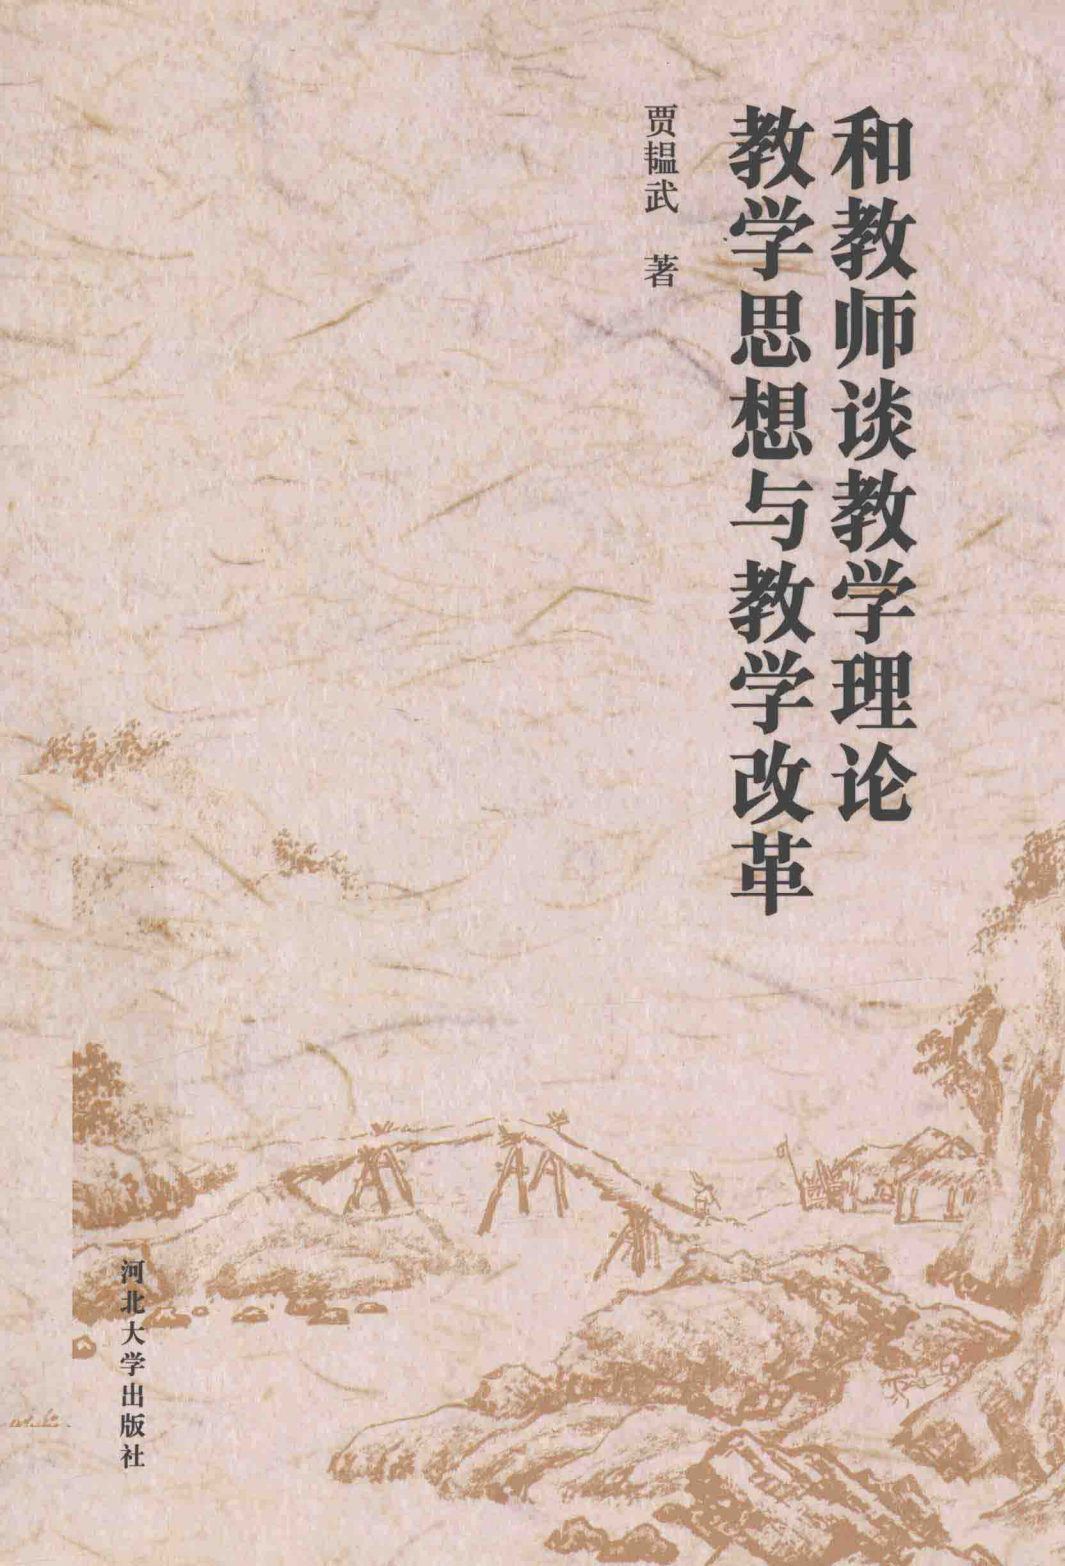 和教师谈教学理论
教学思想与教学改革
贾韫武 著
河北大学出版社